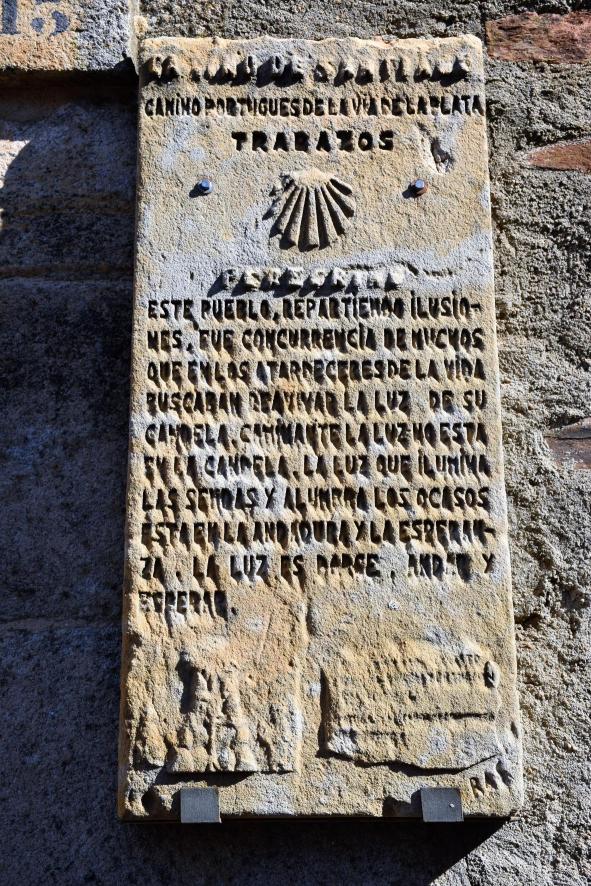 15
CAMINO PORTUGUES DE LA VIA DE LA PLATA
TRABAZOS
PEREGRINO
ESTE PUEBLO, REPARTIENDO ILUSIO-
NES, FUE CONCURRENCIA DE MUCHOS
QUE EN LOS ATARDECERES DE LA VIDA
BUSCABAN REAVIVAR LA LUZ DE SU
CANDELA. CAMINANTE LA LUZ NO ESTA
EN LA CANDELA. LA LUZ QUE ILUMINA
LAS SENDAS Y ALUMBRA LOS OCASOS
ESTA EN LA ANDADURA Y LA ESPERAN-
ZA. LA LUZ ES DARSE, ANDAR Y
ESPERAR.